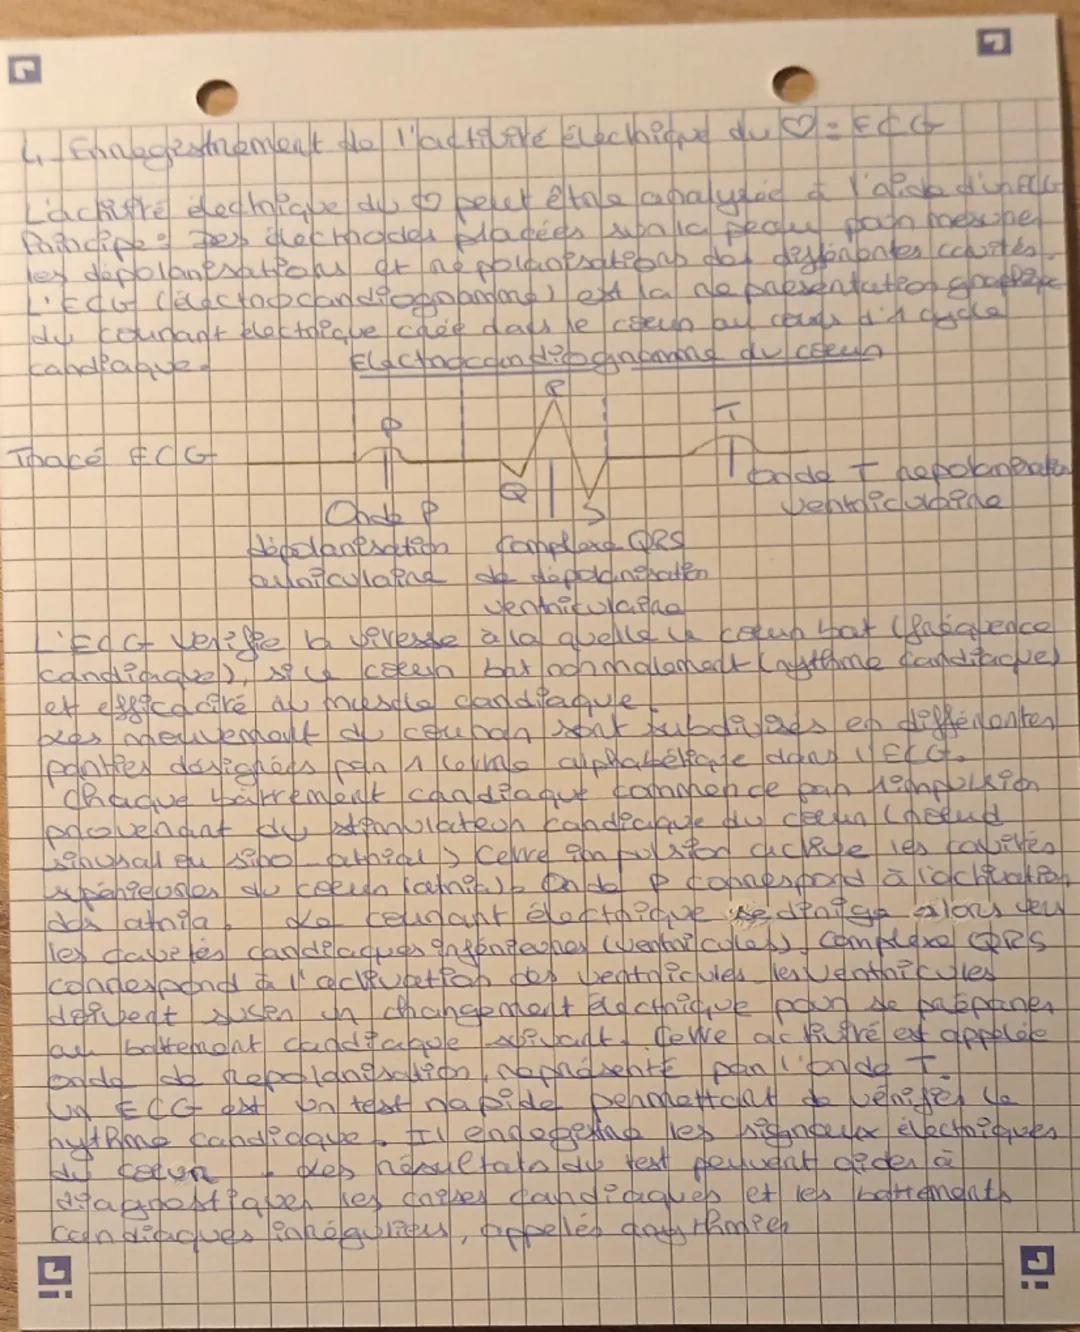 4. Enregistrement de l'activité électrique du ♡ = ECG
L'activité électrique du ♡ peut être analysée à l'aide d'un ECG
Principe : Des électrodes placées sur la peau pour mesurer
les dépolarisations et repolarisations des différentes cavités.
L'ECG (électrocardiogramme) est la représentation graphique
du courant électrique créé dans le cœur au cours d'1 cycle
cardiaque.
Electrocardiogramme du cœur
R
P
T
Tracé ECG
Q
S
onde T repolarisation
ventriculaire
Onde P
dépolarisation
auriculaire
Complexe QRS
de dépolarisation
ventriculaire
L'ECG vérifie la vitesse à la quelle le cœur bat (fréquence
cardiaque), si le cœur bat normalement (rythme cardiaque)
et efficacité du muscle cardiaque.
Les mouvement du sont subdivisés en différentes
parties désignées par 1 alphabétique dans l'ECG.
Chaque battement cardiaque commence par 1 impulsion
provenant du stimulateur cardiaque du cœur (nœud
sinusal ou sino-atrial) Cette impulsion active les cavités
supérieures du cœur (atria). Onde P correspond à l'activation
des atria. Le courant électrique se dirige alors vers
les cavités cardiaques inférieures (ventricules). Complexe QRS
correspond à l'activation des ventricules les ventricules
doivent un changement électrique pour se préparer
au battement cardiaque suivant. Cette activité est appelée
onde de repolarisation, représenté par l'onde T.
Un ECG est un test rapide permettant de vérifier le
rythme cardiaque. Il enregistre les signaux électriques
du cœur. Les résultats du test peuvent aider à
diagnostiquer les crises cardiaques et les battements
cardiaques irréguliers, appelés arrythmies